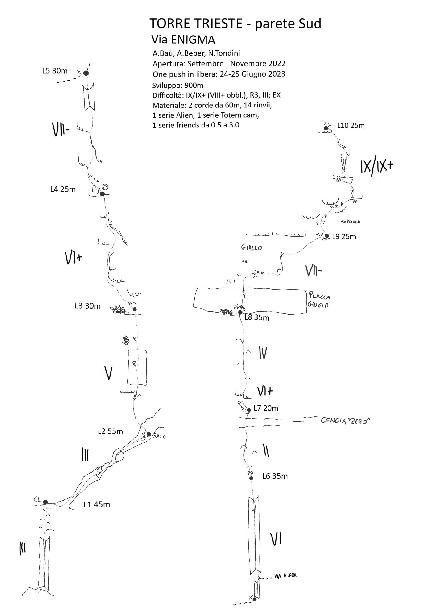 TORRE TRIESTE - parete Sud
Via ENIGMA
A.Baù, A.Beber, N.Tondini
Apertura: Settembre - Novembre 2022
One push in libera: 24-25 Giugno 2023
Sviluppo: 900m
Difficoltà: IX/IX+ (VIII+ obbl.), R3, III; EX
Materiale: 2 corde da 60m, 14 rinvii,
1 serie Alien, 1 serie Totem cam,
1 serie friends da 0.5 a 3.0
L5 30m
VII-
L4 25m
VI+
L3 30m
V
L2 55m
III
CL
L1 45m
L10 25m
IX/IX+
L9 25m
GIALLO
VII-
PLACCA
GRIGIA
L8 35m
IV
VI+
L7 20m
CENGIA "ZERO"
II
L6 35m
VI